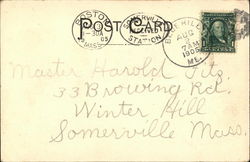 BOSTON
MASS.
POST CARD
STATION
BLUE HILL
AUG
7 AM
1905
ME.
Master Harold Fitz,
33 Browning Rd.
Winter Hill
Somerville Mass.